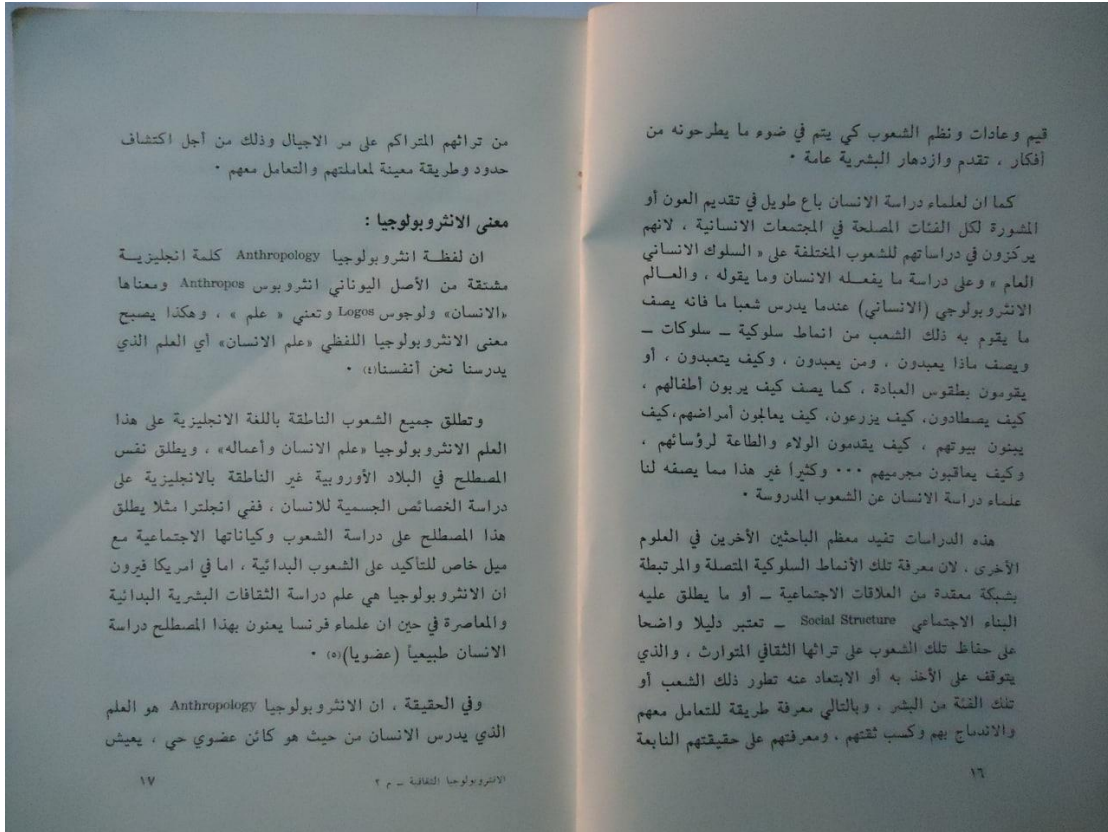 قيم وعادات ونظم الشعوب كي يتم في ضوء ما يطرحونه من
أفكار ، تقدم وازدهار البشرية عامة ٠
كما ان لعلماء دراسة الانسان باع طويل في تقديم العون أو
المشورة لكل الفئات المصلحة في المجتمعات الانسانية ، لانهم
يركزون في دراساتهم للشعوب المختلفة على « السلوك الانساني
العام » وعلى دراسة ما يفعله الانسان وما يقوله ، والعالم
الانثروبولوجي (الانساني) عندما يدرس شعبا ما فانه يصف
ما يقوم به ذلك الشعب من انماط سلوكية ــ سلوكات ــ
ويصف ماذا يعبدون ، ومن يعبدون ، وكيف يتعبدون ، أو
يقومون بطقوس العبادة ، كما يصف كيف يربون أطفالهم ،
كيف يصطادون، كيف يزرعون، كيف يعالجون أمراضهم، كيف
يبنون بيوتهم ، كيف يقدمون الولاء والطاعة لرؤسائهم ،
وكيف يعاقبون مجرميهم ٠٠٠ وكثيرا غير هذا مما يصفه لنا
علماء دراسة الانسان عن الشعوب المدروسة ٠
هذه الدراسات تفيد معظم الباحثين الأخرين في العلوم
الأخرى ، لان معرفة تلك الأنماط السلوكية المتصلة والمرتبطة
بشبكة معقدة من العلاقات الاجتماعية ــ أو ما يطلق عليه
البناء الاجتماعي Social Structure ــ تعتبر دليلا واضحا
على حفاظ تلك الشعوب على تراثها الثقافي المتوارث ، والذي
يتوقف على الأخذ به أو الابتعاد عنه تطور ذلك الشعب أو
تلك الفئة من البشر ، وبالتالي معرفة طريقة للتعامل معهم
والاندماج بهم وكسب ثقتهم ، ومعرفتهم على حقيقتهم النابعة
١٦
من تراثهم المتراكم على مر الاجيال وذلك من أجل اكتشاف
حدود وطريقة معينة لمعاملتهم والتعامل معهم ٠
معنى الانثروبولوجيا :
ان لفظة انثروبولوجيا Anthropology كلمة انجليزية
مشتقة من الأصل اليوناني انثروبوس Anthropos ومعناها
«الانسان» ولوجوس Logos وتعني « علم » ، وهكذا يصبح
معنى الانثروبولوجيا اللفظي «علم الانسان» أي العلم الذي
يدرسنا نحن أنفسنا(٤) ٠
وتطلق جميع الشعوب الناطقة باللغة الانجليزية على هذا
العلم الانثروبولوجيا «علم الانسان وأعماله» ، ويطلق نفس
المصطلح في البلاد الأوروبية غير الناطقة بالانجليزية على
دراسة الخصائص الجسمية للانسان ، ففي انجلترا مثلا يطلق
هذا المصطلح على دراسة الشعوب وكياناتها الاجتماعية مع
ميل خاص للتأكيد على الشعوب البدائية ، اما في امريكا فيرون
ان الانثروبولوجيا هي علم دراسة الثقافات البشرية البدائية
والمعاصرة في حين ان علماء فرنسا يعنون بهذا المصطلح دراسة
الانسان طبيعياً (عضويا)(٥) ٠
وفي الحقيقة ، ان الانثروبولوجيا Anthropology هو العلم
الذي يدرس الانسان من حيث هو كائن عضوي حي ، يعيش
الانثروبولوجيا الثقافية ــ م ٢
١٧